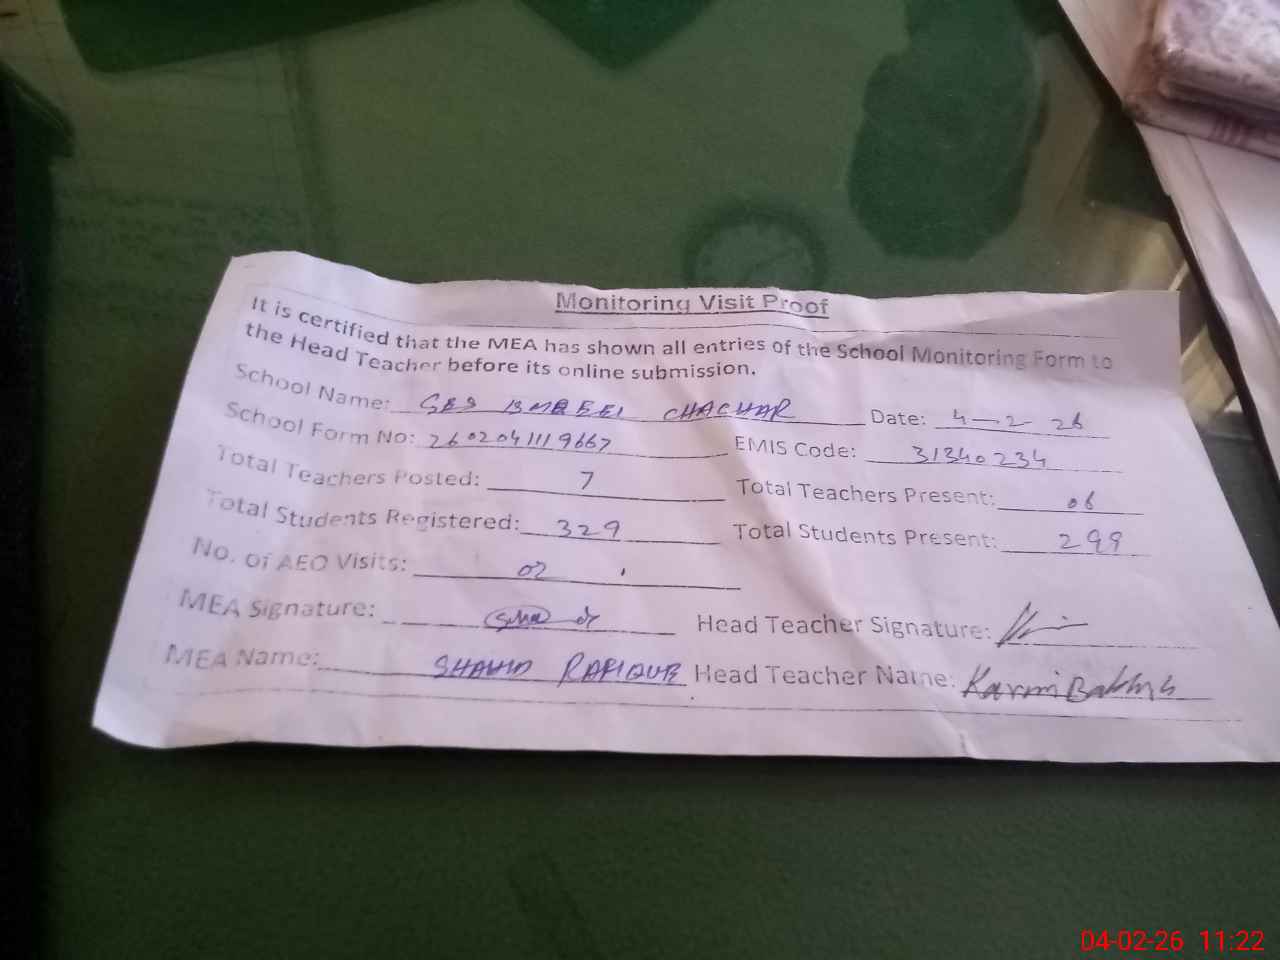 Monitoring Visit Proof
It is certified that the MEA has shown all entries of the School Monitoring Form to
the Head Teacher before its online submission.
School Name: CHACHAR Date: 4-2 26
School Form No: 260204111 9667 EMIS Code: 31340234
Total Teachers Posted: 7 Total Teachers Present: 06
Total Students Registered: 329 Total Students Present: 299
No. of AEO Visits: 02
MEA Signature: Head Teacher Signature:
MEA Name: SHAHID RAFIQUE Head Teacher Name: Karim Bakhsh
04-02-26 11:22